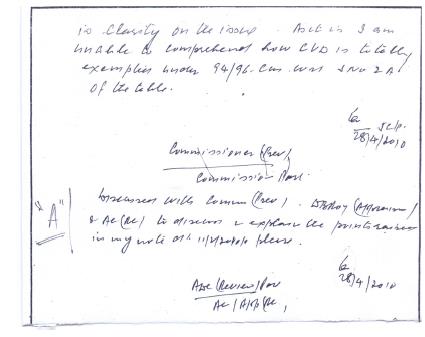 is clarity on the issue. As it is I am
unable to comprehend how CVD is totally
exempted under 94/96. Cus. was S.No 2A
of the table.
28/4/2010
Commissioner (Prev)
Commission
"A"
Discussed with Commr (Prev). (Appraising)
& AC to discuss & explain the points raised
in my note dt 11/2/2010 please.
28/4/2010
ADC (Review)
AC